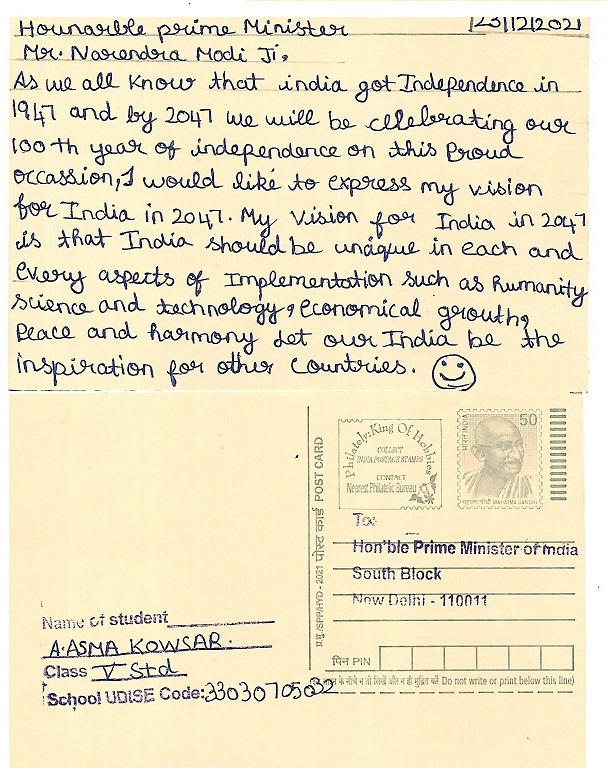 Hounarble prime Minister
23/12/2021
Mr. Narendra Modi Ji,
As we all know that india got Independence in
1947 and by 2047 we will be celebrating our
100th year of independence on this Proud
occassion, I would like to express my vision
for India in 2047. My vision for India in 2047
is that India should be unqique in each and
every aspects of Implementation such as humanity
science and technology, economical grouth,
Peace and harmony Let our India be the
inspiration for other Countries.
Philately: King Of Hobbies
COLLECT
INDIA POSTAGE STAMPS
CONTACT
Nearest Philatelic Bureau
भारत INDIA
50
महात्मा गाँधी MAHATMA GANDHI
प्र.मु./SPP/HYD - 2021 पोस्ट कार्ड POST CARD
To:
Hon'ble Prime Minister of India
South Block
New Delhi - 110011
पिन PIN
के नीचे न तो लिखें और न ही मुद्रित करें Do not write or print below this line)
Name of student
A.ASMA KOWSAR.
Class V Std
School UDISE Code: 33030705032